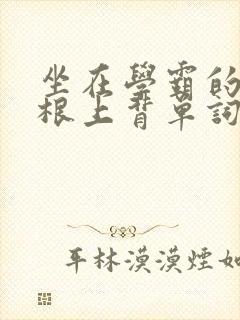 坐在學霸的
根上背單詞
平林漠漠煙如